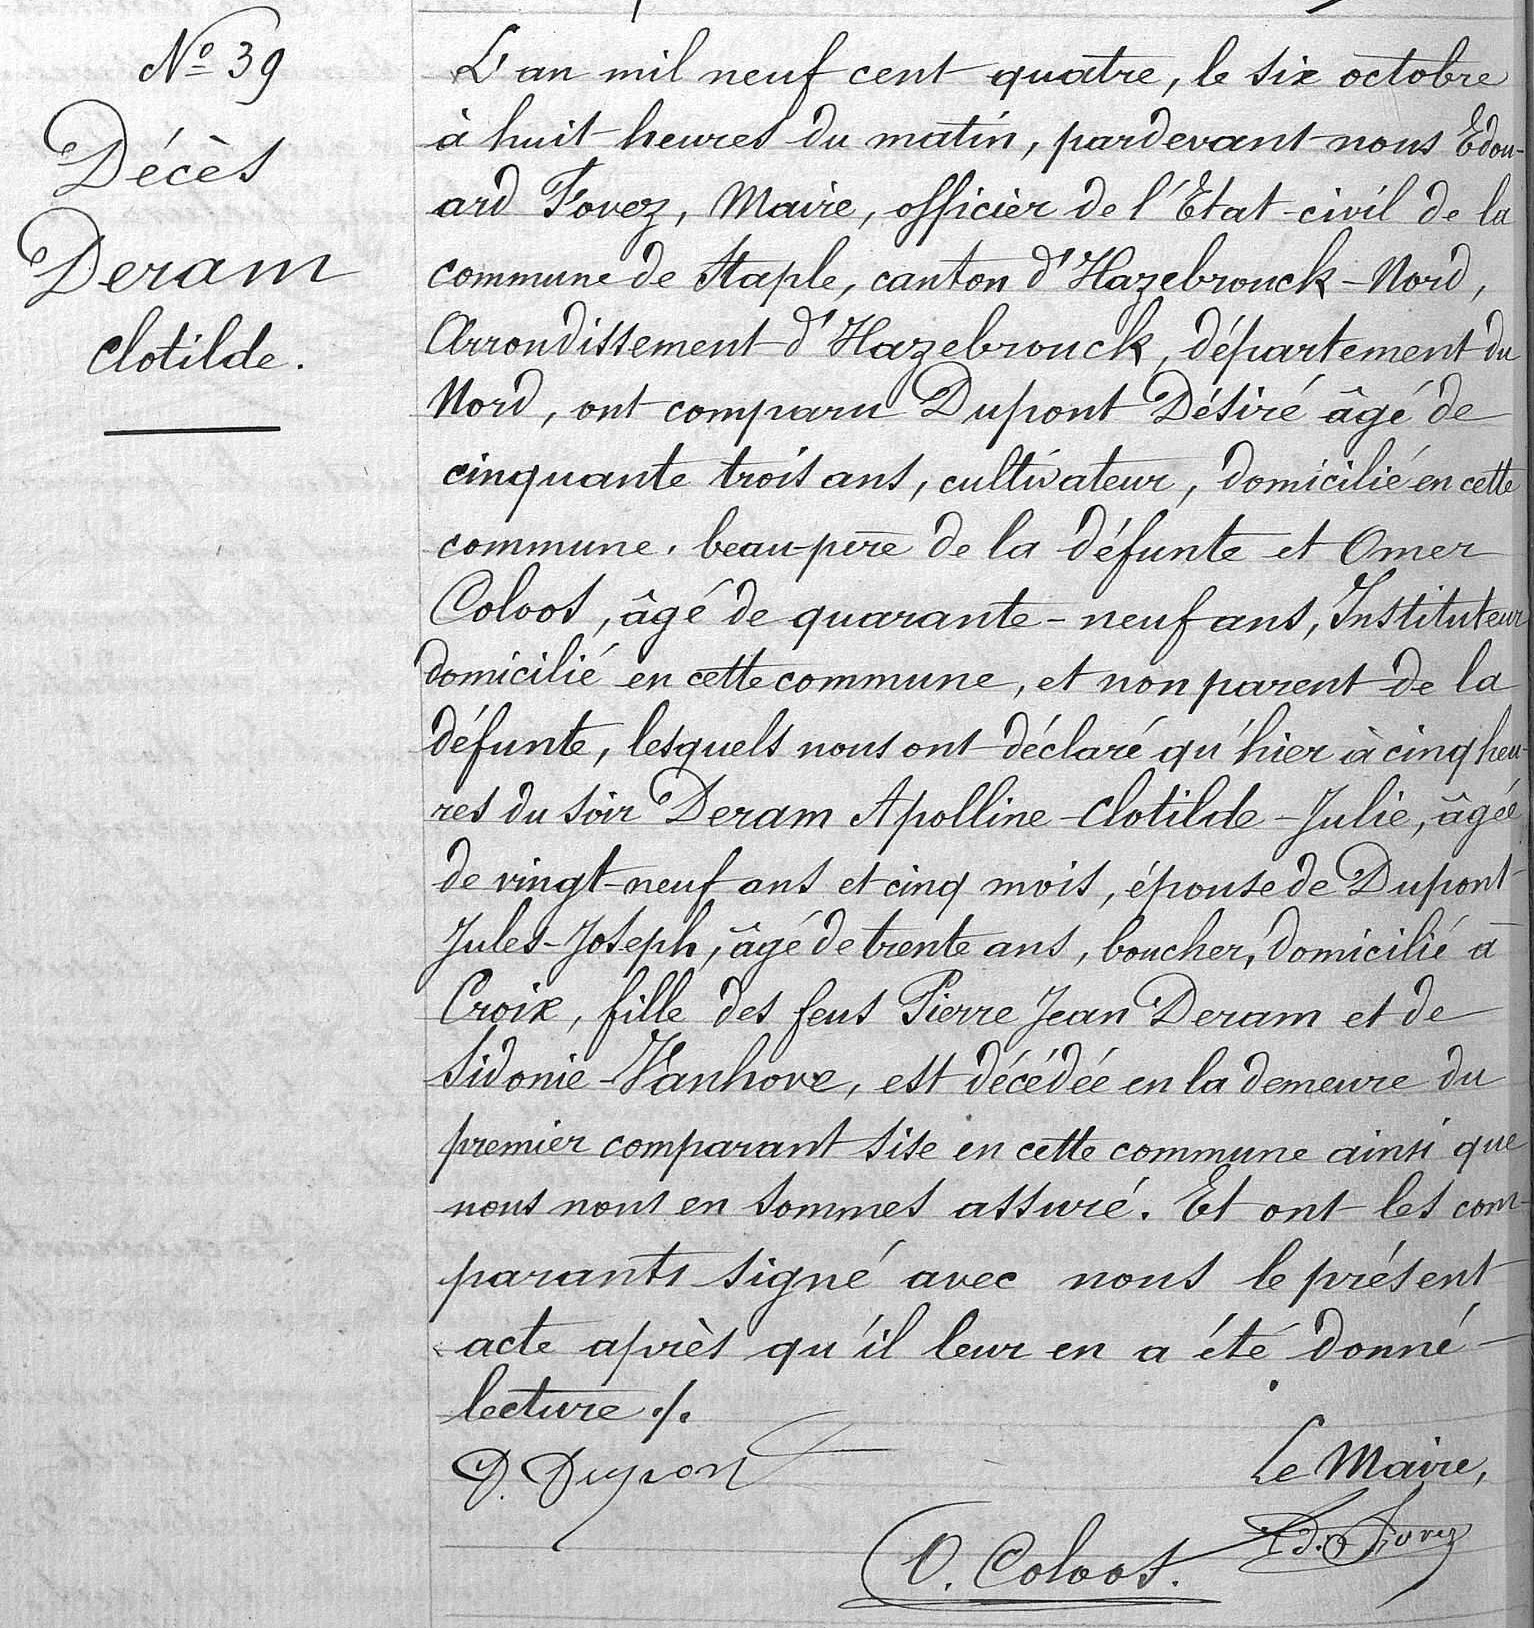 N° 39
Décès
Deram
Clotilde.
L'an mil neuf cent quatre, le six octobre
à huit heures du matin, pardevant nous Edou-
ard Fovez, Maire, officier de l'Etat-civil de la
commune de Staple, canton d'Hazebrouck-Nord,
Arrondissement d'Hazebrouck, département du
Nord, ont comparu Dupont Désiré âgé de
cinquante trois ans, cultivateur, domicilié en cette
commune, beau-père de la défunte et Omer
Coloos, âgé de quarante-neuf ans, Instituteur
domicilié en cette commune, et non parent de la
défunte, lesquels nous ont déclaré qu'hier à cinq heu-
res du soir Deram Apolline-Clotilde-Julie, âgée
de vingt-neuf ans et cinq mois, épouse de Dupont
Jules-Joseph, âgé de trente ans, boucher, domicilié à
Croix, fille des feus Pierre Jean Deram et de
Sidonie Vanhove, est décédée en la demeure du
premier comparant sise en cette commune ainsi que
nous nous en sommes assuré. Et ont les com-
parants signé avec nous le présent
acte après qu'il leur en a été donné
lecture ./.
D. Dupont
Le Maire,
O. Coloos.
Ed. Fovez